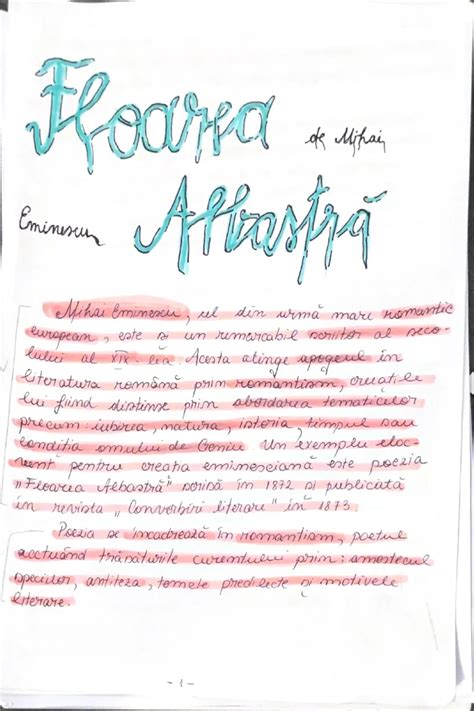 Floarea
de Mihai
Eminescu
Albastră
Mihai Eminescu, cel din urmă mare romantic
european, este și un remarcabil scriitor al seco-
lului al XIX-lea. Acesta atinge apogeul în
literatura română prin romantism, creațiile
lui fiind distinse prin abordarea tematicilor
precum: iubirea, natura, istoria, timpul sau
condiția omului de Geniu. Un exemplu eloc-
vent pentru creația eminesciană este poezia
„Floarea Albastră" scrisă în 1872 și publicată
în revista „Convorbiri literare" în 1873.
Poezia se încadrează în romantism, poetul
accentuând trăsăturile curentului prin: amestecul
speciilor, antiteza, temele predilecte și motivele
literare.
-1-